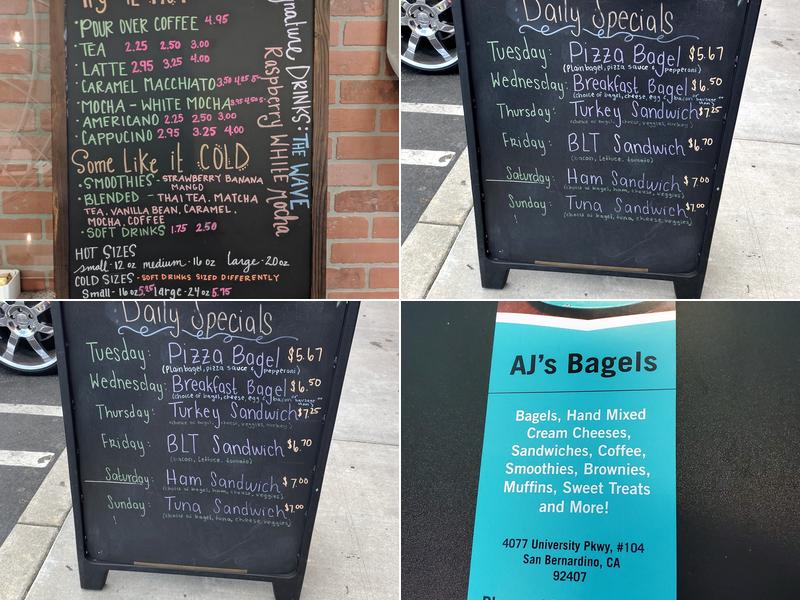 POUR OVER COFFEE 4.95
· TEA 2.25 2.50 3.00
· LATTE 2.95 3.25 4.00
· CARAMEL MACCHIATO
· MOCHA - WHITE MOCHA
· AMERICANO 2.25 2.50 3.00
· CAPPUCINO 2.95 3.25 4.00
Some Like it COLD
· SMOOTHIES - STRAWBERRY BANANA
MANGO
· BLENDED - THAI TEA, MATCHA
TEA, VANILLA BEAN, CARAMEL,
MOCHA, COFFEE
· SOFT DRINKS 1.75 2.50
HOT SIZES
small-12 oz medium-16 oz large-20oz
COLD SIZES - SOFT DRINKS SIZED DIFFERENTLY
Small-16oz 5.25 large-24oz 5.75
DRINKS: THE WAVE
Raspberry WHITE Mocha
Daily Specials
Tuesday: Pizza Bagel $5.67
(Plain bagel, pizza sauce & pepperoni)
Wednesday: Breakfast Bagel $6.50
(choice of bagel, cheese, egg & bacon
Thursday: Turkey Sandwich $7.25
(choice of bagel, cheese, veggies, turkey)
Friday: BLT Sandwich $6.70
(bacon, lettuce, tomato)
Saturday: Ham Sandwich $7.00
(choice of bagel, ham, cheese, veggies)
Sunday: Tuna Sandwich $7.00
(choice of bagel, tuna, cheese, veggies)
Daily Specials
Tuesday: Pizza Bagel $5.67
(Plain bagel, pizza sauce & pepperoni)
Wednesday: Breakfast Bagel $6.50
(choice of bagel, cheese, egg & bacon
Thursday: Turkey Sandwich $7.25
(choice of bagel, cheese, veggies, turkey)
Friday: BLT Sandwich $6.70
(bacon, lettuce, tomato)
Saturday: Ham Sandwich $7.00
(choice of bagel, ham, cheese, veggies)
Sunday: Tuna Sandwich $7.00
(choice of bagel, tuna, cheese, veggies)
AJ's Bagels
Bagels, Hand Mixed
Cream Cheeses,
Sandwiches, Coffee,
Smoothies, Brownies,
Muffins, Sweet Treats
and More!
4077 University Pkwy, #104
San Bernardino, CA
92407